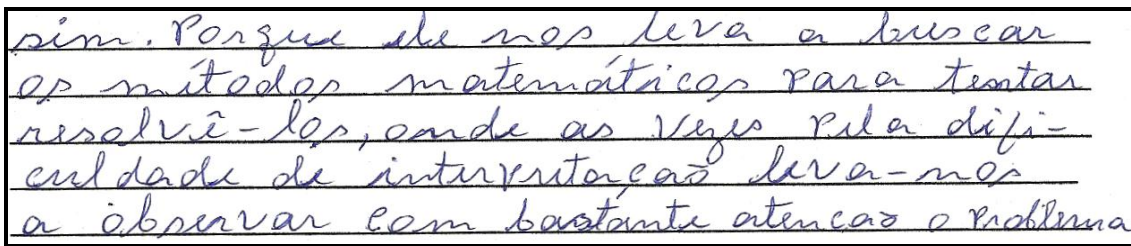 sim. Porque ele nos leva a buscar
os métodos matemáticos para tentar
resolvê-los, onde as vezes pela difi-
culdade de interpretação leva-nos
a observar com bastante atencao o problema